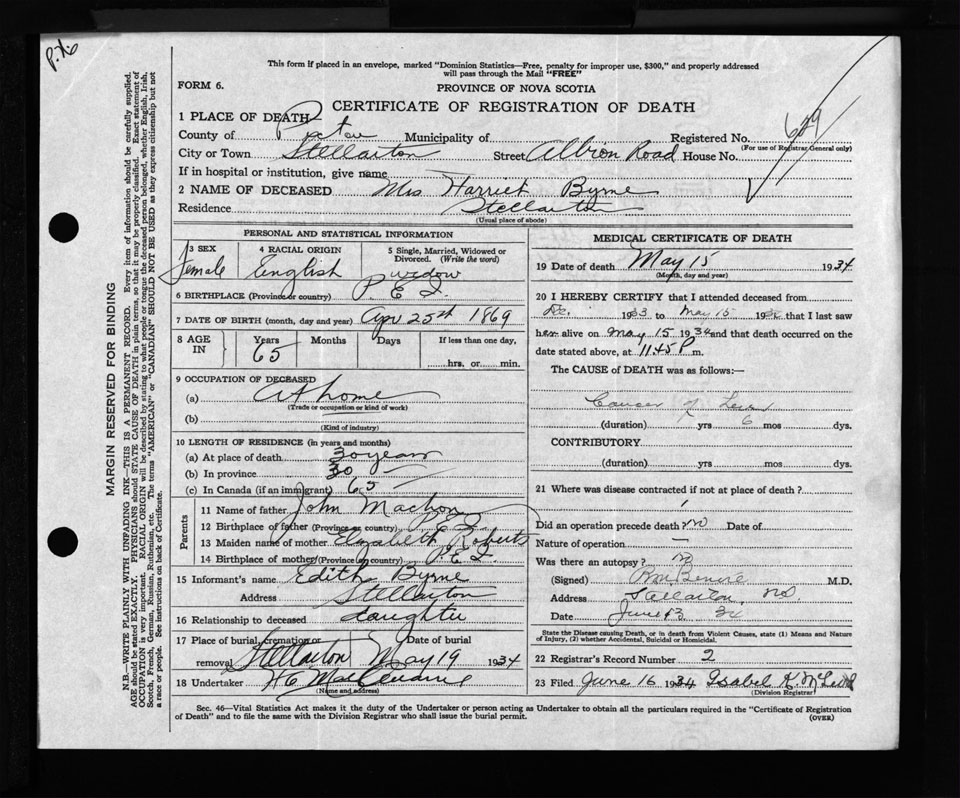 P.76
This form if placed in an envelope, marked "Dominion Statistics—Free, penalty for improper use, $300," and properly addressed
will pass through the Mail "FREE"
FORM 6.
PROVINCE OF NOVA SCOTIA
CERTIFICATE OF REGISTRATION OF DEATH
1 PLACE OF DEATH
County of Pictou Municipality of Registered No. 689
(For use of Registrar General only)
City or Town Stellarton Street Albion Road House No.
If in hospital or institution, give name
2 NAME OF DECEASED Mrs Harriet Byrne
Residence Stellarton
(Usual place of abode)
PERSONAL AND STATISTICAL INFORMATION
3 SEX Female
4 RACIAL ORIGIN English
5 Single, Married, Widowed or Divorced. (Write the word) widow
6 BIRTHPLACE (Province or country) P.E.I.
7 DATE OF BIRTH (month, day and year) Apr 25th 1869
8 AGE IN Years 65 Months Days If less than one day, hrs. or min.
9 OCCUPATION OF DECEASED
(a) At home
(Trade or occupation or kind of work)
(b)
(Kind of industry)
10 LENGTH OF RESIDENCE (in years and months)
(a) At place of death 30 years
(b) In province 30
(c) In Canada (if an immigrant) 65
Parents
11 Name of father John Machon
12 Birthplace of father (Province or country) P.E.I.
13 Maiden name of mother Elizabeth Roberts
14 Birthplace of mother (Province or country) P.E.I.
15 Informant's name Edith Byrne
Address Stellarton
16 Relationship to deceased daughter
17 Place of burial, cremation or removal Stellarton Date of burial May 19 1934
18 Undertaker H C
(Name and address)
MEDICAL CERTIFICATE OF DEATH
19 Date of death May 15 1934
(Month, day and year)
20 I HEREBY CERTIFY that I attended deceased from
Dec. 1933 to May 15 1934 that I last saw
her alive on May 15 1934 and that death occurred on
date stated above, at 11.45 P m.
The CAUSE of DEATH was as follows:—
Cancer of
(duration) yrs 6 mos dys.
CONTRIBUTORY
(duration) yrs. mos. dys.
21 Where was disease contracted if not at place of death?
Did an operation precede death? no Date of
Nature of operation —
Was there an autopsy? no
(Signed) M.D.
Address Stellarton, N.S.
Date June 13 34
State the Disease causing Death, or in death from Violent Causes, state (1) Means and Nature
of Injury, (2) whether Accidental, Suicidal or Homicidal.
22 Registrar's Record Number 2
23 Filed June 16 1934 Isabel K. McLeod
(Division Registrar)
Sec. 46—Vital Statistics Act makes it the duty of the Undertaker or person acting as Undertaker to obtain all the particulars required in the "Certificate of Registration
of Death" and to file the same with the Division Registrar who shall issue the burial permit.
(OVER)
MARGIN RESERVED FOR BINDING
N.B.—WRITE PLAINLY WITH UNFADING INK—THIS IS A PERMANENT RECORD. Every item of information should be carefully supplied.
AGE should be stated EXACTLY. PHYSICIANS should STATE CAUSE OF DEATH in plain terms, so that it may be properly classified. Exact statement of
OCCUPATION is very important. RACIAL ORIGIN will be described by stating to what people or tongue the deceased person belonged, whether English, Irish,
Scotch, French, German, Russian, Ruthenian, etc. The terms "AMERICAN" or "CANADIAN" SHOULD NOT BE USED as they express citizenship but not
a race or people. See instructions on back of Certificate.